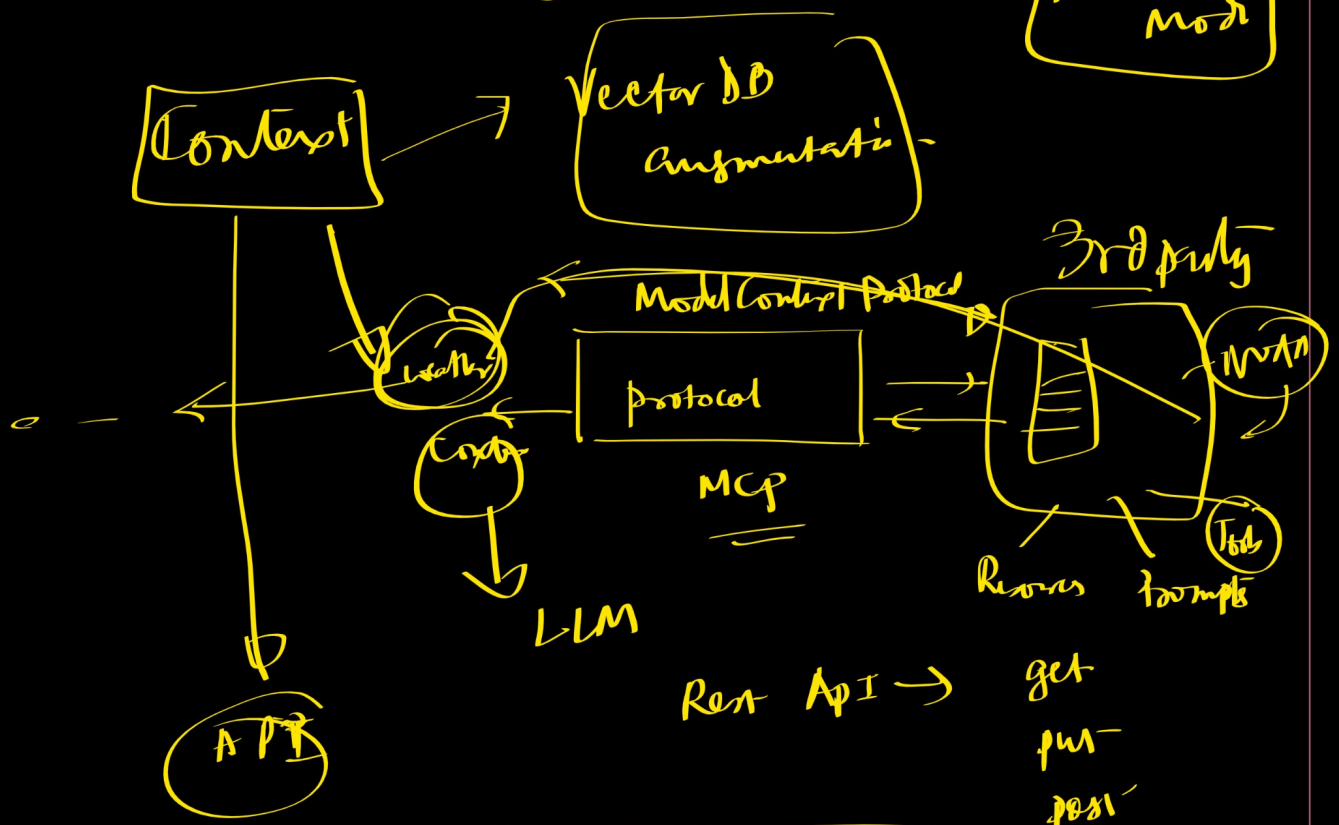 Model
Context
Vector DB
augmentation
3rd party
Model Context Protocol
weather
protocol
Context
MCP
Tools
Resources
Prompts
LLM
Rest API →
get
put
post
API